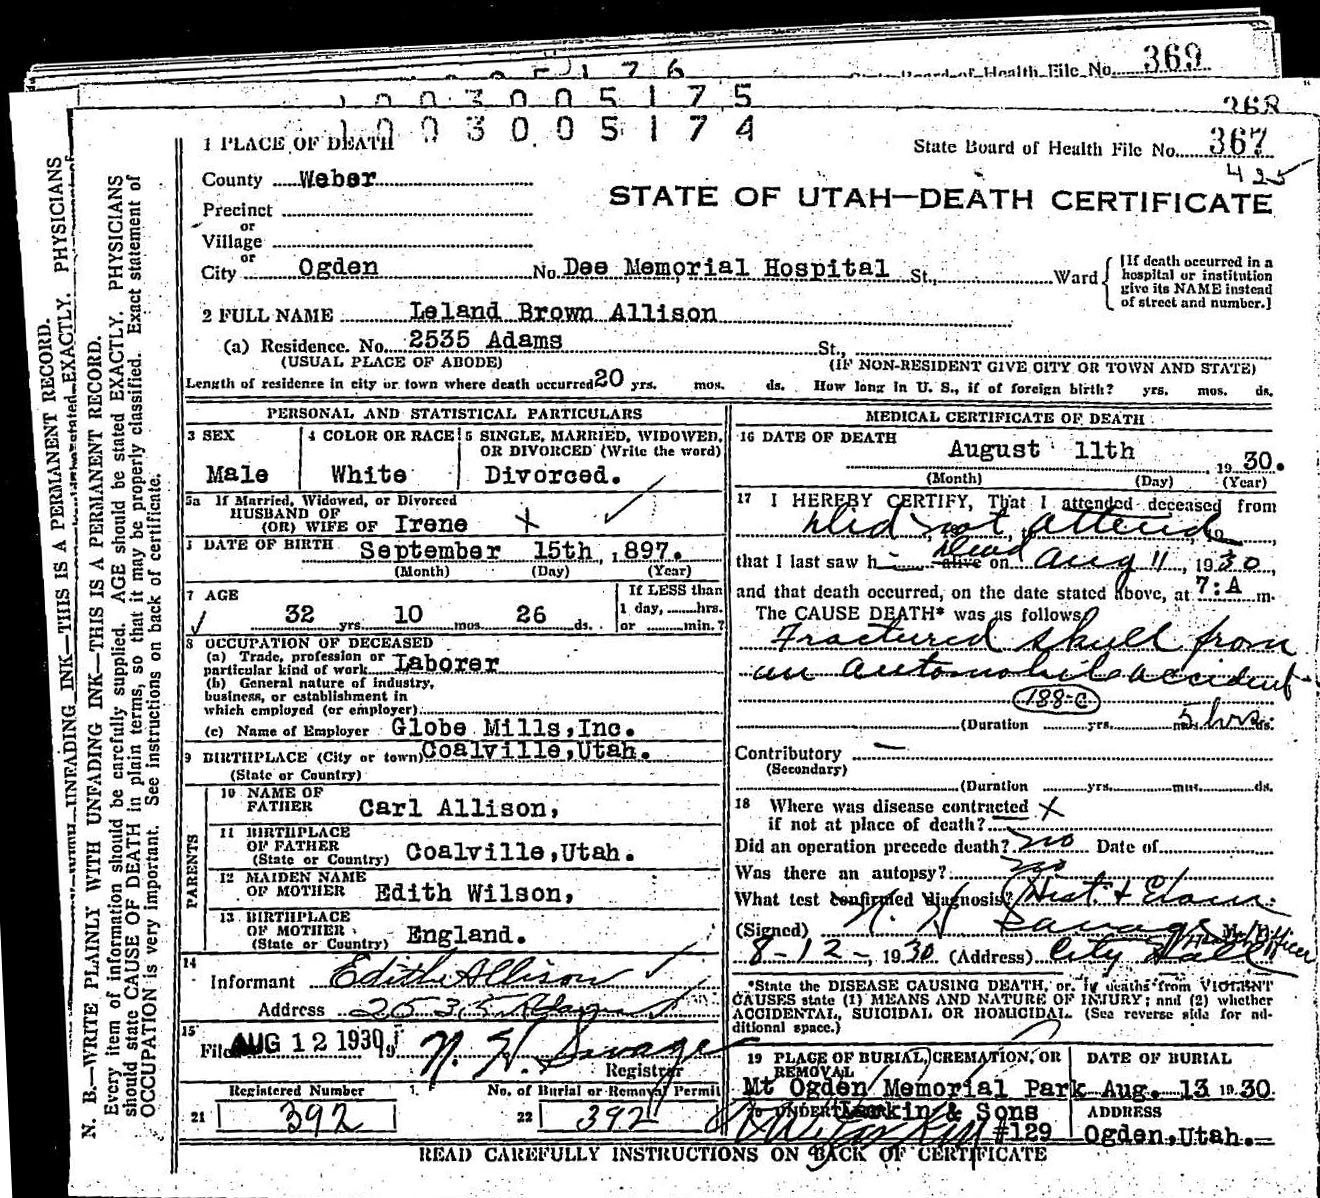 369
State Board of Health File No.
1003005175
368
1003005174
1 PLACE OF DEATH
State Board of Health File No. 367
425
County Weber
STATE OF UTAH—DEATH CERTIFICATE
Precinct
or
Village
or
City Ogden No. Dee Memorial Hospital St., Ward
[If death occurred in a
hospital or institution
give its NAME instead
of street and number.]
2 FULL NAME Leland Brown Allison
(a) Residence. No. 2535 Adams St.,
(USUAL PLACE OF ABODE) (IF NON-RESIDENT GIVE CITY OR TOWN AND STATE)
Length of residence in city or town where death occurred 20 yrs. mos. ds. How long in U. S., if of foreign birth? yrs. mos. ds.
PERSONAL AND STATISTICAL PARTICULARS
3 SEX
Male
4 COLOR OR RACE
White
5 SINGLE, MARRIED, WIDOWED,
OR DIVORCED (Write the word)
Divorced.
5a If Married, Widowed, or Divorced
HUSBAND OF
(OR) WIFE OF Irene
DATE OF BIRTH September 15th, 1897.
(Month) (Day) (Year)
7 AGE
32 yrs. 10 mos. 26 ds.
If LESS than
1 day, hrs.
or min.?
8 OCCUPATION OF DECEASED
(a) Trade, profession or
particular kind of work Laborer
(b) General nature of industry,
business, or establishment in
which employed (or employer)
(c) Name of Employer Globe Mills, Inc.
9 BIRTHPLACE (City or town) Coalville, Utah.
(State or Country)
PARENTS
10 NAME OF
FATHER Carl Allison,
11 BIRTHPLACE
OF FATHER
(State or Country) Coalville, Utah.
12 MAIDEN NAME
OF MOTHER Edith Wilson,
13 BIRTHPLACE
OF MOTHER
(State or Country) England.
14
Informant Edith Allison
Address 2535 Adams
15
Filed AUG 12 1930, 19 N. H. Savage
Registrar
Registered Number
21 392
No. of Burial or Removal Permit
22 392
MEDICAL CERTIFICATE OF DEATH
16 DATE OF DEATH
August 11th 1930.
(Month) (Day) (Year)
17 I HEREBY CERTIFY, That I attended deceased from
Did not attend
that I last saw h alive on Dead Aug 11, 1930,
and that death occurred, on the date stated above, at 7:A m.
The CAUSE DEATH* was as follows
Fractured skull from
an automobile accident
188-c
(Duration yrs. mos. 5 hrs ds.
Contributory —
(Secondary)
(Duration yrs. mos. ds.
18 Where was disease contracted
if not at place of death? X
Did an operation precede death? no Date of
Was there an autopsy? no
What test confirmed diagnosis? Hist. + Exam.
(Signed) N. H. Savage M. D.
Health Officer
8-12-, 1930 (Address) City Hall
*State the DISEASE CAUSING DEATH, or, in deaths from VIOLENT
CAUSES state (1) MEANS AND NATURE OF INJURY; and (2) whether
ACCIDENTAL, SUICIDAL OR HOMICIDAL. (See reverse side for ad-
ditional space.)
19 PLACE OF BURIAL, CREMATION, OR
REMOVAL
Mt Ogden Memorial Park
DATE OF BURIAL
Aug. 13 1930.
20 UNDERTAKER Larkin & Sons
#129
ADDRESS
Ogden, Utah.
READ CAREFULLY INSTRUCTIONS ON BACK OF CERTIFICATE
N. B.—WRITE PLAINLY WITH UNFADING INK—THIS IS A PERMANENT RECORD.
Every item of information should be carefully supplied. AGE should be stated EXACTLY. PHYSICIANS
should state CAUSE OF DEATH in plain terms, so that it may be properly classified. Exact statement of
OCCUPATION is very important. See instructions on back of certificate.